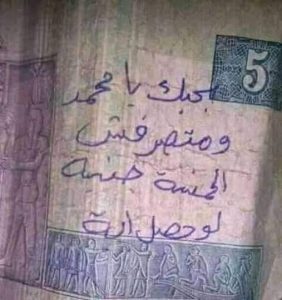 5
بحبك يا محمد
ومتصرفش
الخمسة جنية
لو حصل اية